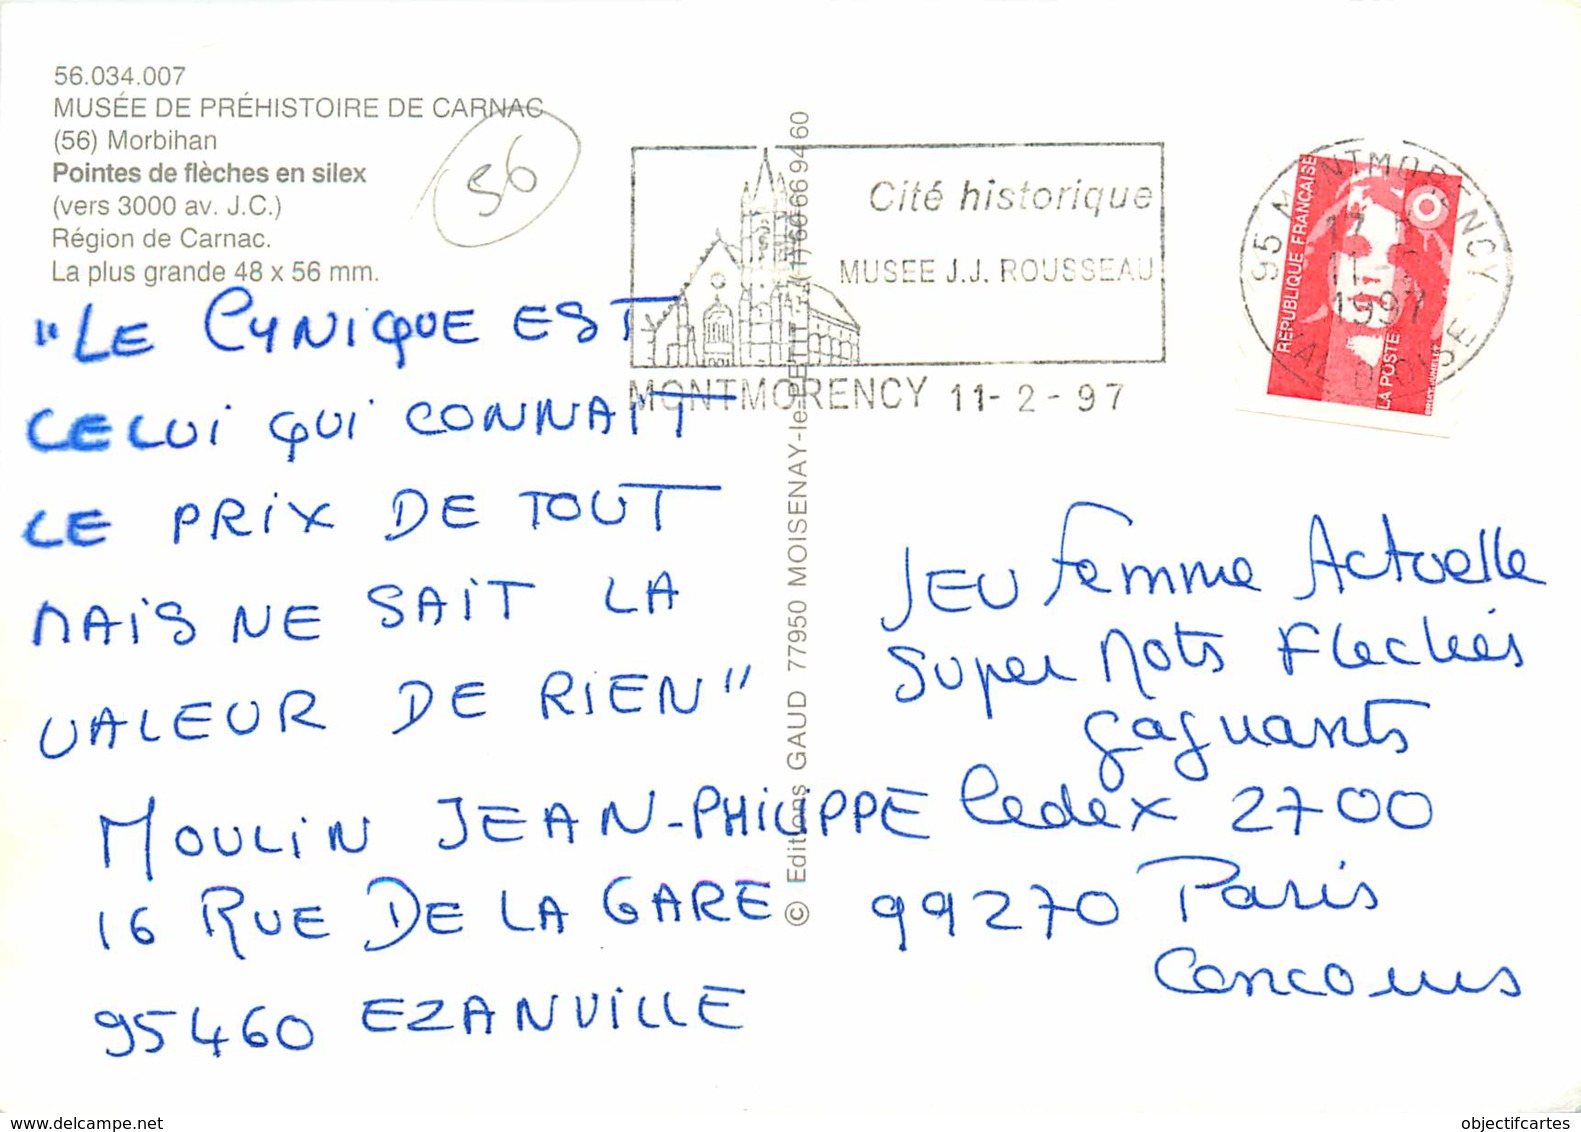 56.034.007
MUSÉE DE PRÉHISTOIRE DE CARNAC
(56) Morbihan
Pointes de flèches en silex
(vers 3000 av. J.C.)
Région de Carnac.
La plus grande 48 x 56 mm.
56
"LE CYNIQUE EST
CELUI QUI CONNAIT
LE PRIX DE TOUT
MAIS NE SAIT LA
VALEUR DE RIEN"
MOULIN JEAN-PHILIPPE
16 RUE DE LA GARE
95460 EZANVILLE
© Editions GAUD 77950 MOISENAY-le-PETIT - (1) 60 66 94 60
Cité historique
MUSEE J.J. ROUSSEAU
MONTMORENCY 11-2-97
95 MONTMORENCY
17 H
11-2
1997
VAL D'OISE
REPUBLIQUE FRANÇAISE
LA POSTE
JEU Femme Actuelle
Super Mots Flechés
gagnants
Cedex 2700
99270 Paris
Concours
objectifcartes